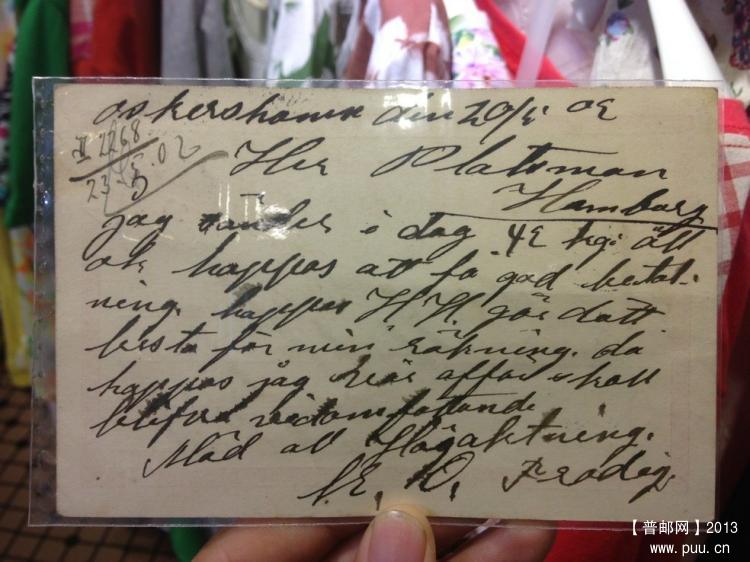 oskershamn den 20/5 02
II 2268
23 5 02
Her Platsman
Hamburg
jag sänder i dag 42 kgi ål
ok happas att få god betal-
ning. happas H H. gör dätt
besta för min räkning. då
happas jag affär skall
blifva
Mäd all Högaktning.
O.
【普邮网】2013
www.puu.cn